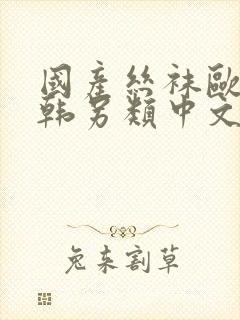 國產絲袜歐
韩另類中文
兔来割草